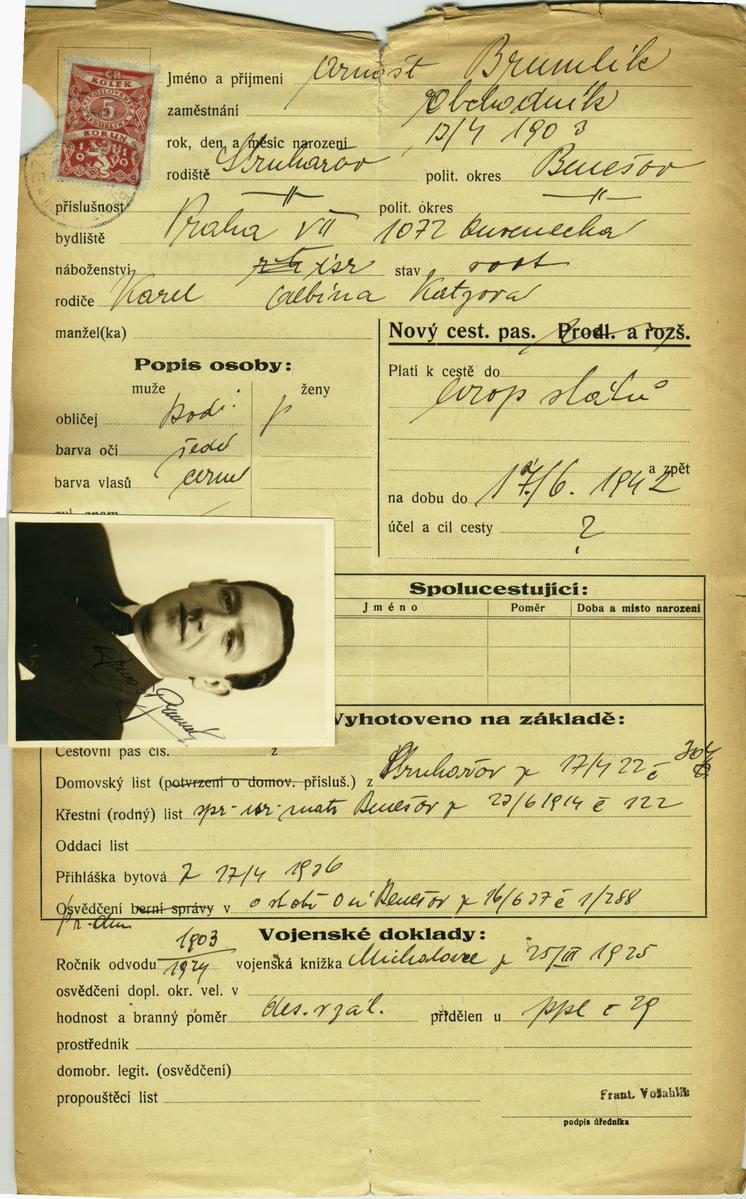 ČR
KOLEK
5
KORUN
Jméno a příjmení Arnošt Brumlik
zaměstnání Obchodník
rok, den a měsíc narození 13/4 1903
rodiště Struhařov polit. okres Benešov
příslušnost -"- polit. okres -"-
bydliště Praha VII 1072
náboženství isr stav
rodiče Karel Albína
manžel(ka)
Nový cest. pas. Prodl. a rozš.
Popis osoby:
muže ženy
obličej
barva očí šedé
barva vlasů černé
Platí k cestě do
evrop států
a zpět
na dobu do 17/6. 1942
účel a cíl cesty ?
Spolucestující:
Jméno Poměr Doba a místo narození
Vyhotoveno na základě:
Cestovní pas čís. z
Domovský list (potvrzení o domov. přísluš.) z Struhařov z 17/4 22 č
Křestní (rodný) list Benešov z 23/6 1914 č 122
Oddací list
Přihláška bytová z 17/4 1936
Osvědčení berní správy v Benešov z 16/6 37 č 1/288
Vojenské doklady:
Ročník odvodu 1903/1924 vojenská knížka Michalovce z 25/III 1925
osvědčení dopl. okr. vel. v
hodnost a branný poměr přidělen u
prostředník
domobr. legit. (osvědčení)
propouštěcí list
Frant. Vošahlík
podpis úředníka